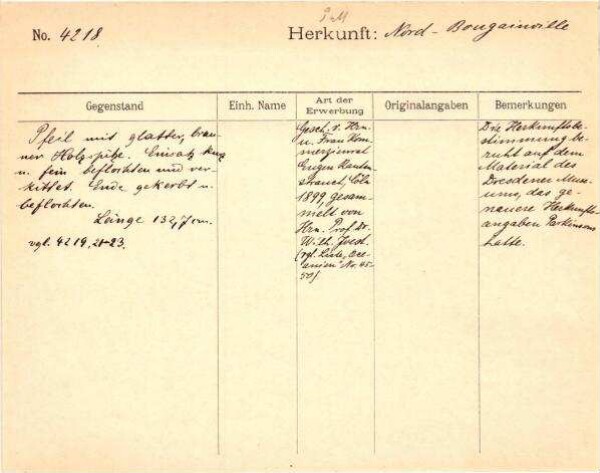 No. 4218.
Herkunft: Nord-Bougainville
Gegenstand
Einh. Name
Art der Erwerbung
Originalangaben
Bemerkungen
Pfeil mit glatter, brau-
ner Holzspitze. Einsatz kurz
u. fein beflochten und ver-
kittet. Ende gekerbt u.
beflochten.
Länge 132,7 cm.
vgl. 4219, 21-23.
Gesch. v. Hrn.
u. Frau Kom-
merzienrat
Eugen Rauten-
strauch, Cöln
1899, gesam-
melt von
Hrn. Prof. Dr.
W. Joest.
(vgl. Liste, Oce-
anien" No. 45-
50)
Die Herkunftsbe-
stimmung be-
ruht auf dem
Material des
Dresdener Muse-
ums, das ge-
nauere Herkunfts-
angaben Parkinsons
hatte.